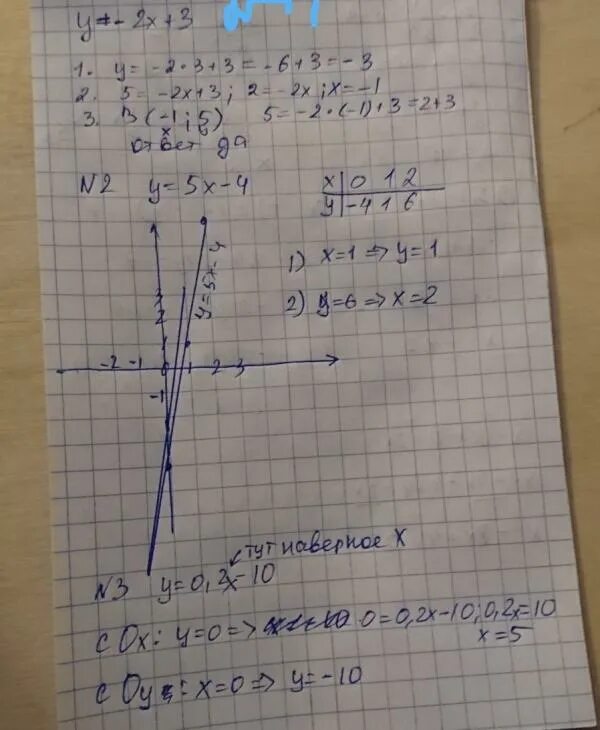 y=-2x+3
1. y = -2·3+3 = -6+3 = -3
2. 5 = -2x+3; 2 = -2x; x = -1
3. B(-1; 5) 5 = -2·(-1)+3 = 2+3
x y
ответ да
N2 y = 5x-4
x 0 1 2
y -4 1 6
1) x=1 => y=1
2) y=6 => x=2
y=5x-4
3
2
1
-2 -1 0 1 2 3
-1
тут наверное x
N3 y=0,2x-10
с Ox: y=0 => 0=0,2x-10; 0,2x=10
x=5
с Oy: x=0 => y=-10